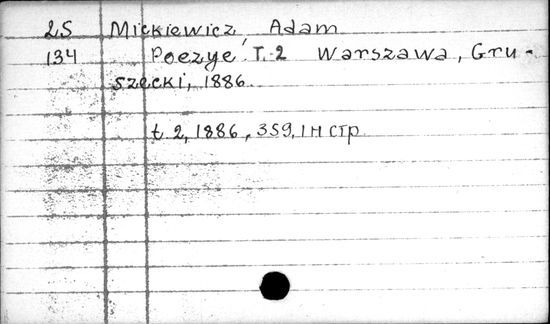 25 Mickiewicz Adam
134 Poezye. T. 2 Warszawa, Gru-
szecki, 1886.
t. 2, 1886, 359, 1 н стр